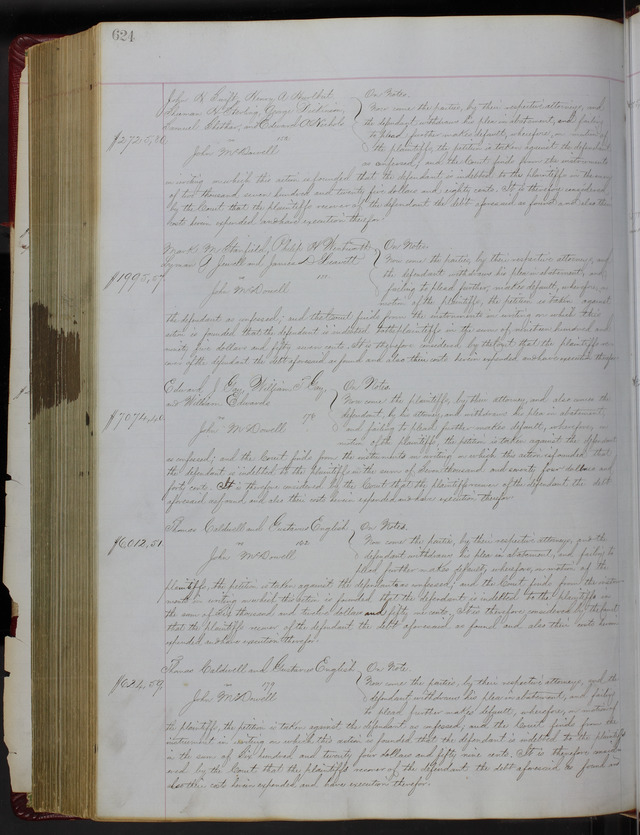 624
John H. Swift, Henry A.
On Notes.
Now come the parties, by their respective attorneys, and
the defendant withdraws his plea in abatement, and failing
to plead further makes default, wherefore, on motion of
$2725,80
vs
the plaintiffs, the petition is taken against the defendant
John McDowell
as confessed, and the Court finds from the instruments
in writing on which this action is founded that the defendant is indebted to the plaintiffs in the sum
of two thousand seven hundred and twenty five dollars and eighty cents. It is therefore considered
by the Court that the plaintiffs recover of the defendant the debt aforesaid as found and also their
costs herein expended and have execution therefor.
On Notes.
Now come the parties, by their respective attorneys, and
$1995,57
vs
the defendant withdraws his plea in abatement, and
John McDowell
failing to plead further, makes default, wherefore, on
motion of the plaintiffs, the petition is taken against
the defendant as confessed; and the Court finds from the instruments in writing on which this
action is founded that the defendant is indebted to the plaintiffs in the sum of nineteen hundred and
ninety five dollars and fifty seven cents. It is therefore considered by the Court that the plaintiffs re-
cover of the defendant the debt aforesaid as found and also their costs herein expended and have execution therefor
Edward J. Gay, William T. Gay,
and William Edwards
On Note.
Now come the plaintiffs, by their attorney, and also comes the
defendant, by his attorney, and withdraws his plea in abatement,
$7074,40
vs
and failing to plead further makes default, wherefore, on
John McDowell
motion of the plaintiffs the petition is taken against the defendant
as confessed; and the Court finds from the instruments in writing on which this action is founded that
the defendant is indebted to the plaintiffs in the sum of seven thousand and seventy four dollars and
forty cents. It is therefore considered by the Court that the plaintiffs recover of the defendant the debt
aforesaid as found, and also their costs herein expended and have execution therefor
Thomas Caldwell and Gustavus English
On Notes.
$6012,51
vs
Now come the parties, by their respective attorneys, and the
John McDowell
defendant withdraws his plea in abatement, and failing to
plead further makes default, wherefore, on motion of the
plaintiffs, the petition is taken against the defendant as confessed; and the Court finds from the instru-
ments in writing on which this action is founded that the defendant is indebted to the plaintiffs in
the sum of six thousand and twelve dollars and fifty one cents. It is therefore considered by the Court
that the plaintiffs recover of the defendant the debt aforesaid as found and also their costs herein
expended and have execution therefor.
Thomas Caldwell and Gustavus English
On Note.
$624,59
vs
Now come the parties, by their respective attorneys, and the
John McDowell
defendant withdraws his plea in abatement, and failing
to plead further makes default, wherefore, on motion of
the plaintiffs, the petition is taken against the defendant as confessed, and the Court finds from the
instrument in writing on which this action is founded that the defendant is indebted to the plaintiffs
in the sum of Six hundred and twenty four dollars and fifty nine cents. It is therefore consid-
ered by the Court that the plaintiffs recover of the defendant the debt aforesaid as found and
also their costs herein expended and have execution therefor.